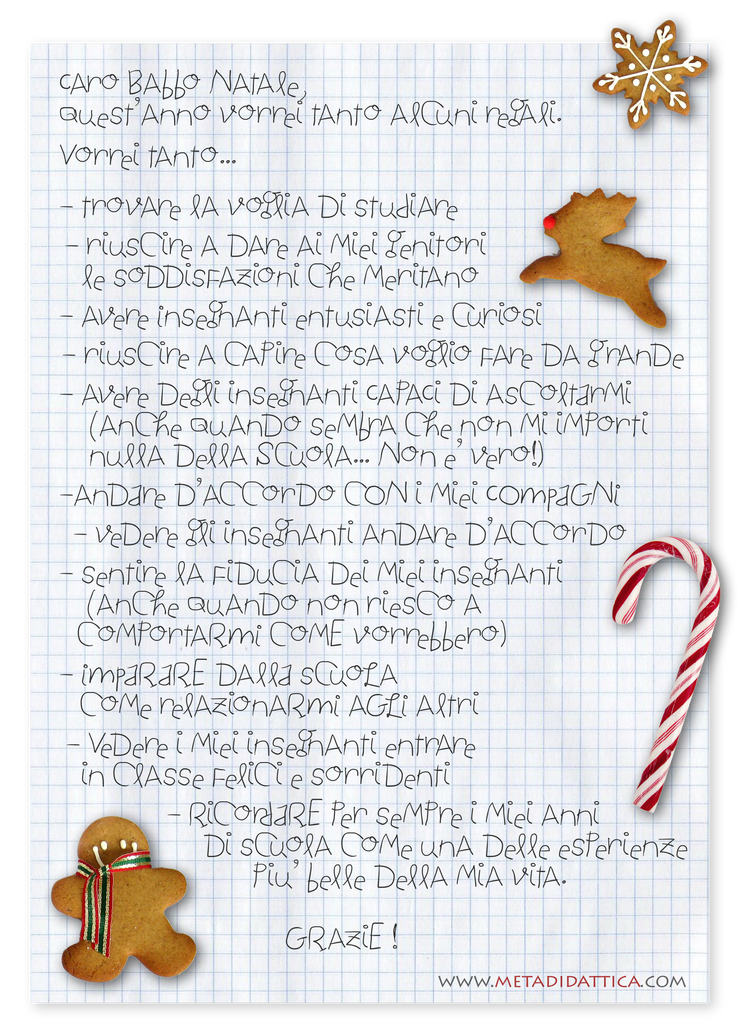 Caro Babbo Natale,
quest'anno vorrei tanto alcuni regali.
Vorrei tanto...
- trovare la voglia di studiare
- riuscire a dare ai miei genitori
le soddisfazioni che meritano
- Avere insegnanti entusiasti e curiosi
- riuscire a capire cosa voglio fare da grande
- Avere degli insegnanti capaci di ascoltarmi
(Anche quando sembra che non mi importi
nulla della scuola... Non e' vero!)
- Andare d'accordo con i miei compagni
- vedere gli insegnanti andare d'accordo
- sentire la fiducia dei miei insegnanti
(Anche quando non riesco a
comportarmi come vorrebbero)
- imparare dalla scuola
come relazionarmi agli altri
- Vedere i miei insegnanti entrare
in classe felici e sorridenti
- Ricordare per sempre i miei anni
di scuola come una delle esperienze
piu' belle della mia vita.
GRAZIE!
WWW.METADIDATTICA.COM